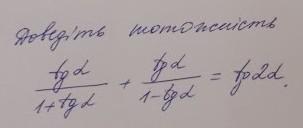 Доведіть тотожність
tgα/(1+tgα) + tgα/(1-tgα) = tg2α.